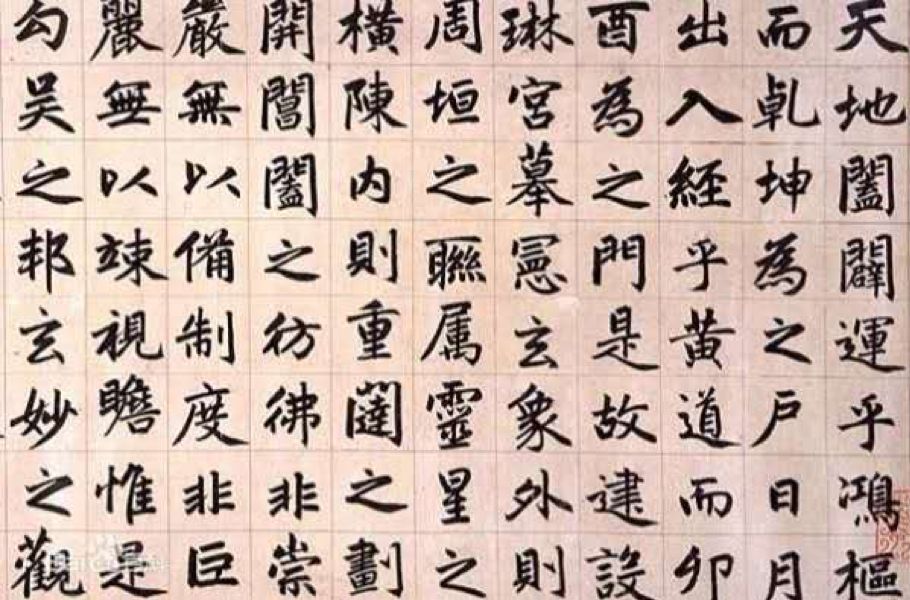 天地闔闢運乎鴻樞
而乹坤為之户日月
出入經乎黄道而卯
酉為之門是故建設
琳宮摹憲玄象外則
周垣之聯属靈星之
橫陳内則重闥之劃
開闔闔之彷彿非崇
嚴無以備制度非巨
麗無以竦視瞻惟是
勾吴之邦玄妙之觀